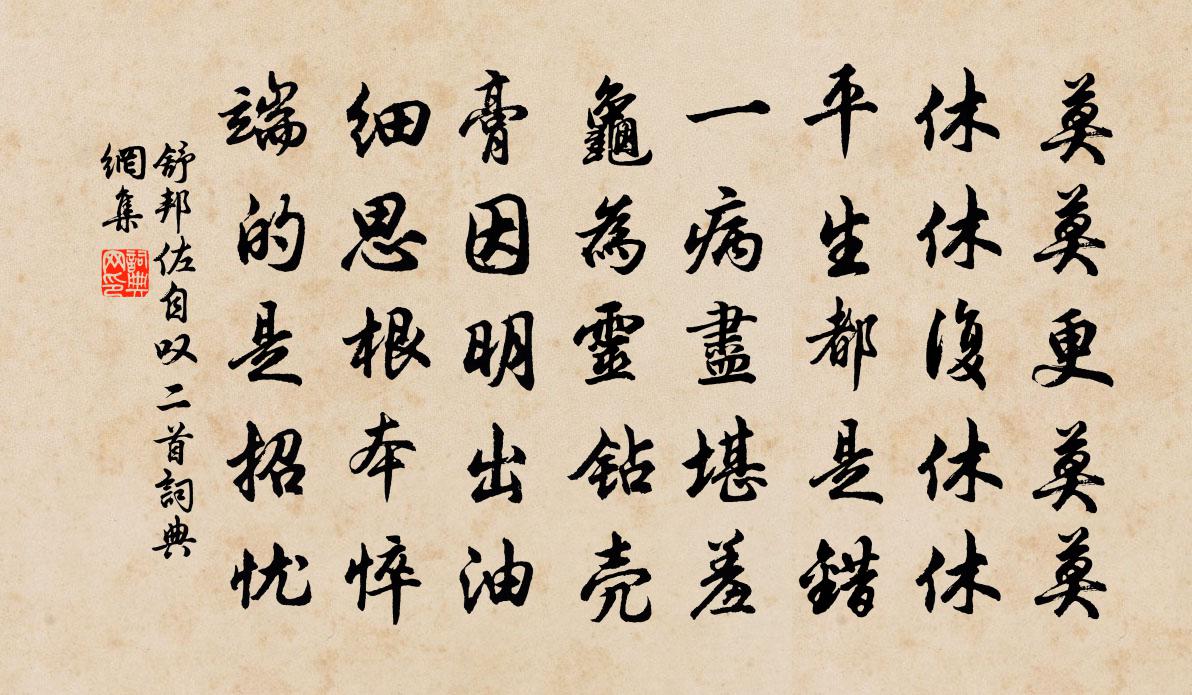 莫莫更莫莫
休休復休休
平生都是錯
一病盡堪羞
龜為靈钻壳
膏因明出油
细思根本悴
端的是招忧
舒邦佐自叹二首詞典
網集
詞典
网印